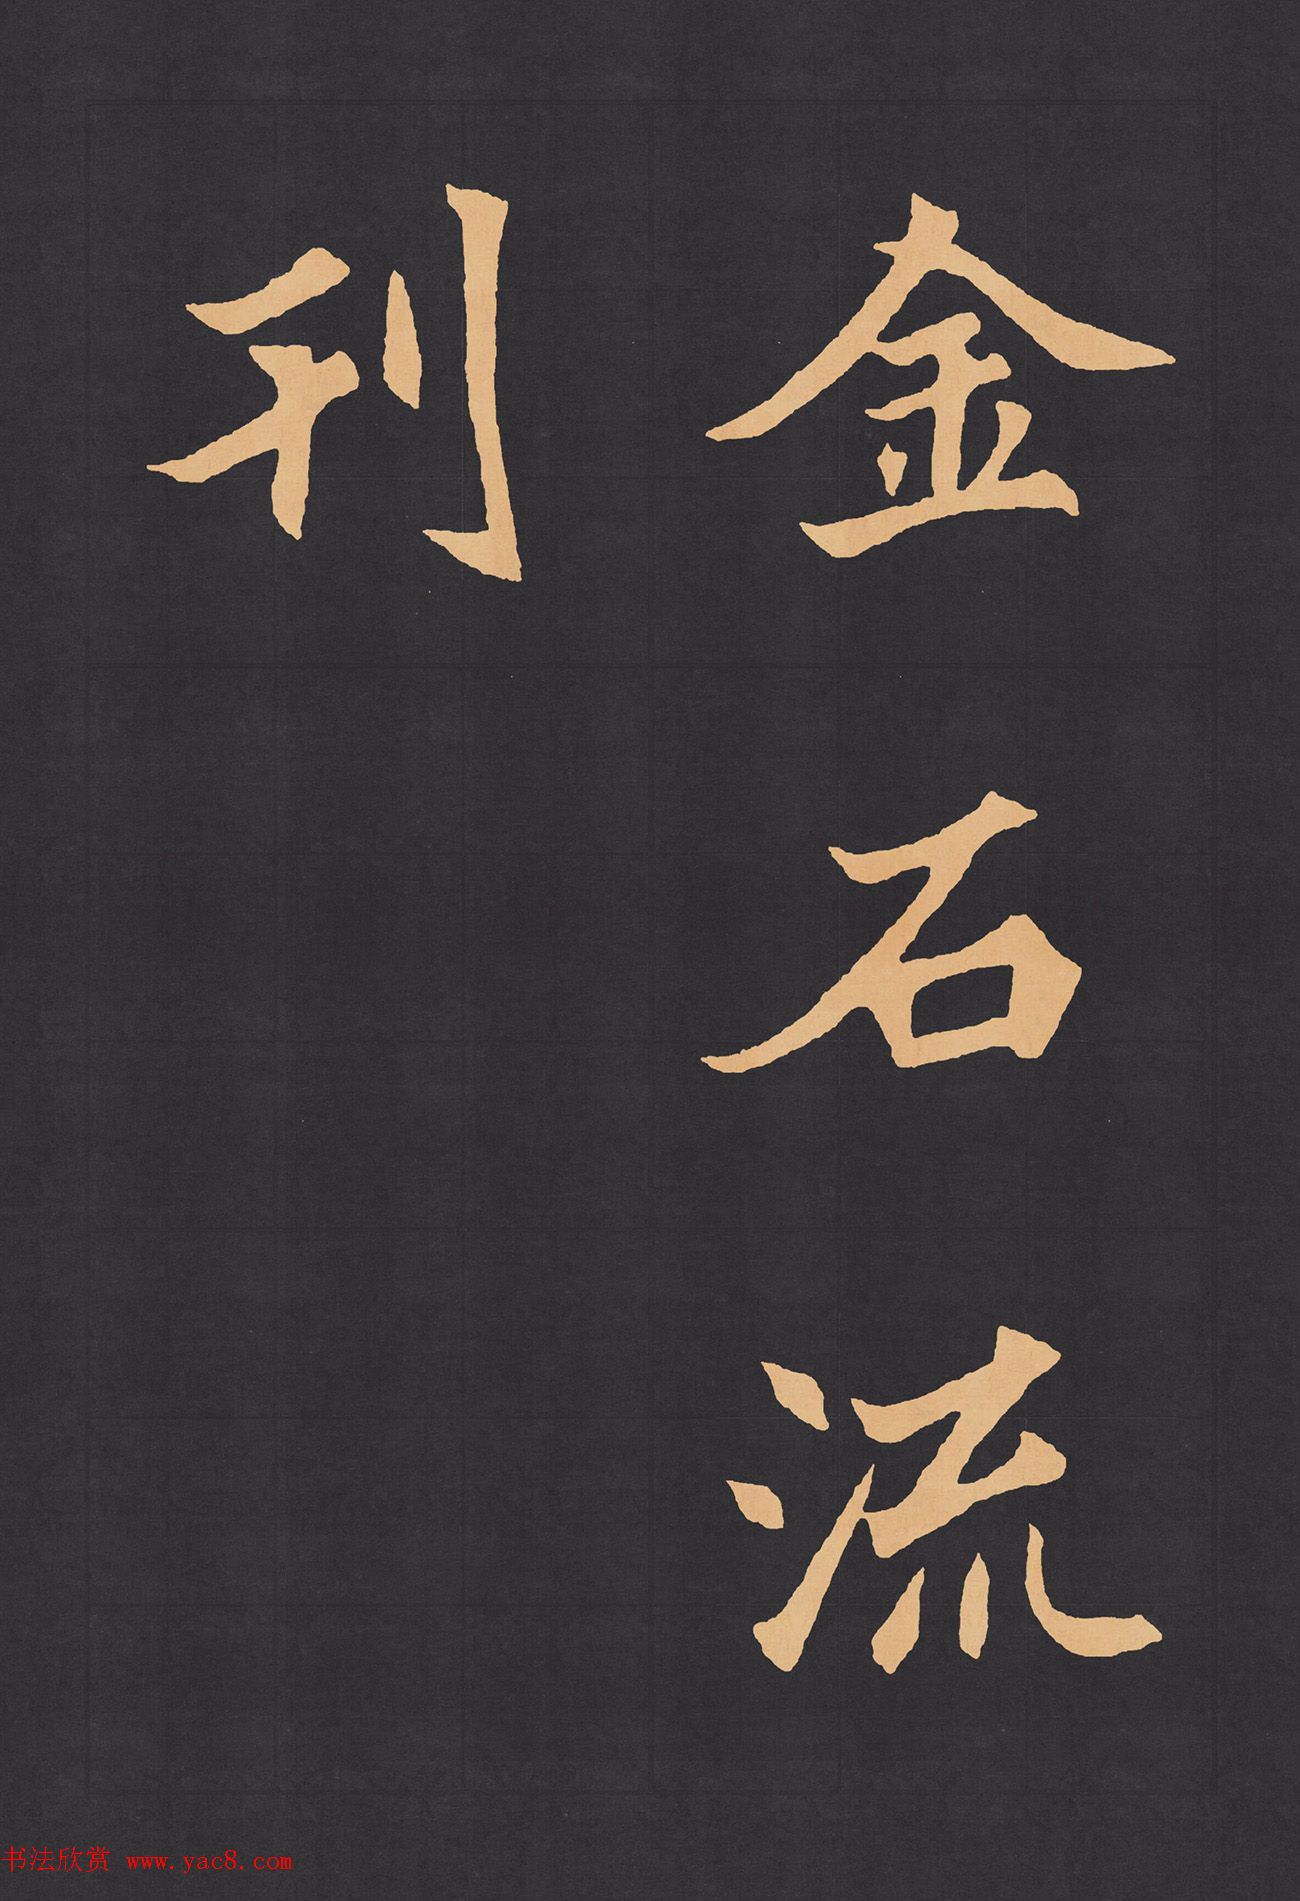 金石流
刊
书法欣赏 www.yac8.com